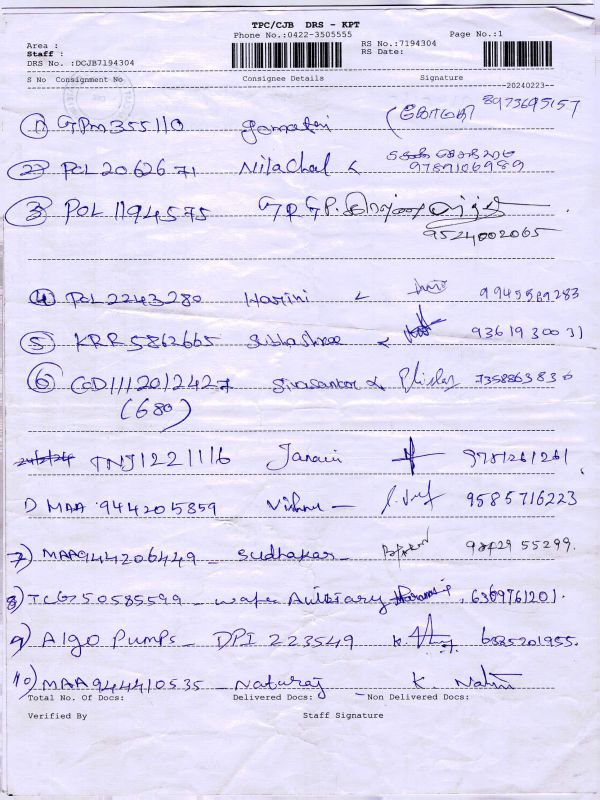 TPC/CJB DRS - KPT
Phone No.:0422-3505555 Page No.:1
Area : RS No.:7194304
Staff : RS Date:
DRS No. :DCJB7194304
S No Consignment No Consignee Details Signature
20240223
① GPM355110 gomathi கோமதி 8973695157
② POL2062671 Nilachal
9789106989
③ POL1194575 GRGP.
9524002065
④ POL2243280 Harini 9945589283
⑤ KRR5862665 Subhashree 9361930031
⑥ COD1112012427 Sivasankar 7358863836
(680)
24/2/24 TNJ1221116 Janani 9781261261
D MAA 944205859 Vishnu - 9585716223
7) MAA944206449 - Sudhakar - 9842955299.
8) TCG750585599 - Wafer 6369761201.
9) Algo Pumps - DPI 223549 6385201955.
10) MAA944410535 - Nataraj K.
Total No. Of Docs: Delivered Docs: Non Delivered Docs:
Verified By Staff Signature